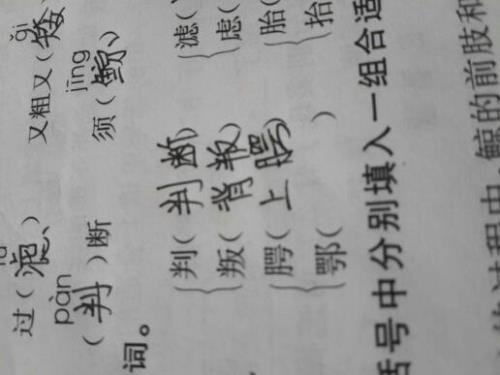 过(滤) 又粗又(矮
pàn jīng
(判)断 须(鲸)
词。
判(判断) 滤(
叛(背叛) 虑(
腭(上腭) 胎(
鄂( ) 抬(
括号中分别填入一组合适
的过程中,鲸的前肢和